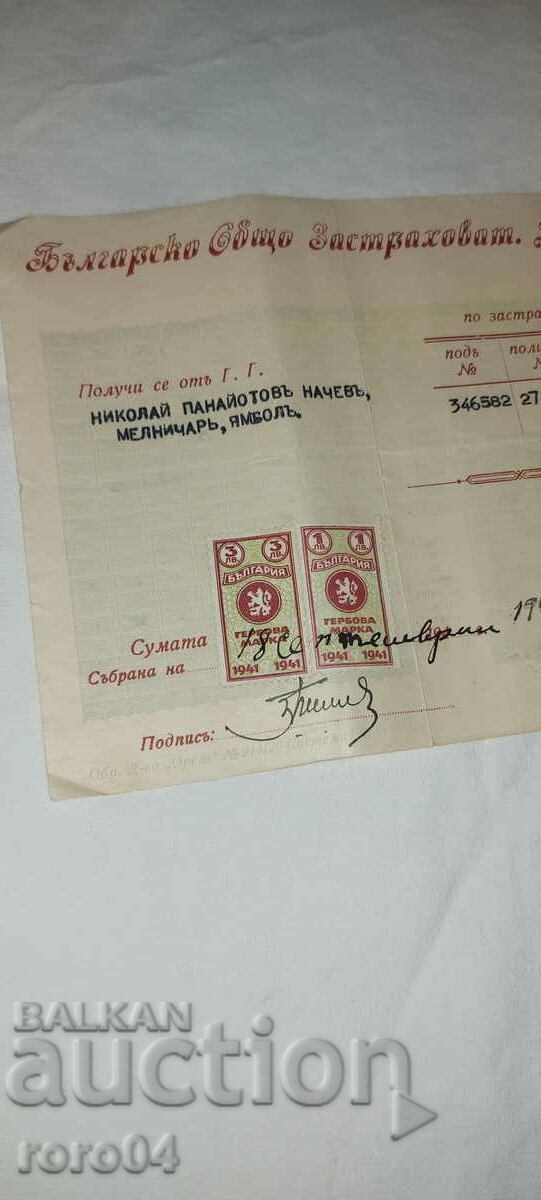 Българско Общо Застраховат.
по застра
Получи се отъ Г. Г.
НИКОЛАЙ ПАНАЙОТОВЪ НАЧЕВЪ,
МЕЛНИЧАРЬ, ЯМБОЛЪ.
подъ поли
№
346582 27
3 ЛВ. 3 ЛВ. 1 ЛВ. 1 ЛВ.
БЪЛГАРИЯ БЪЛГАРИЯ
ГЕРБОВА МАРКА ГЕРБОВА МАРКА
1941 1941 1941 1941
Сумата
Събрана на 18 септемврий 19
Подпись:
Обр. Д-во „Орелъ" №
BALKAN
auction
roro04